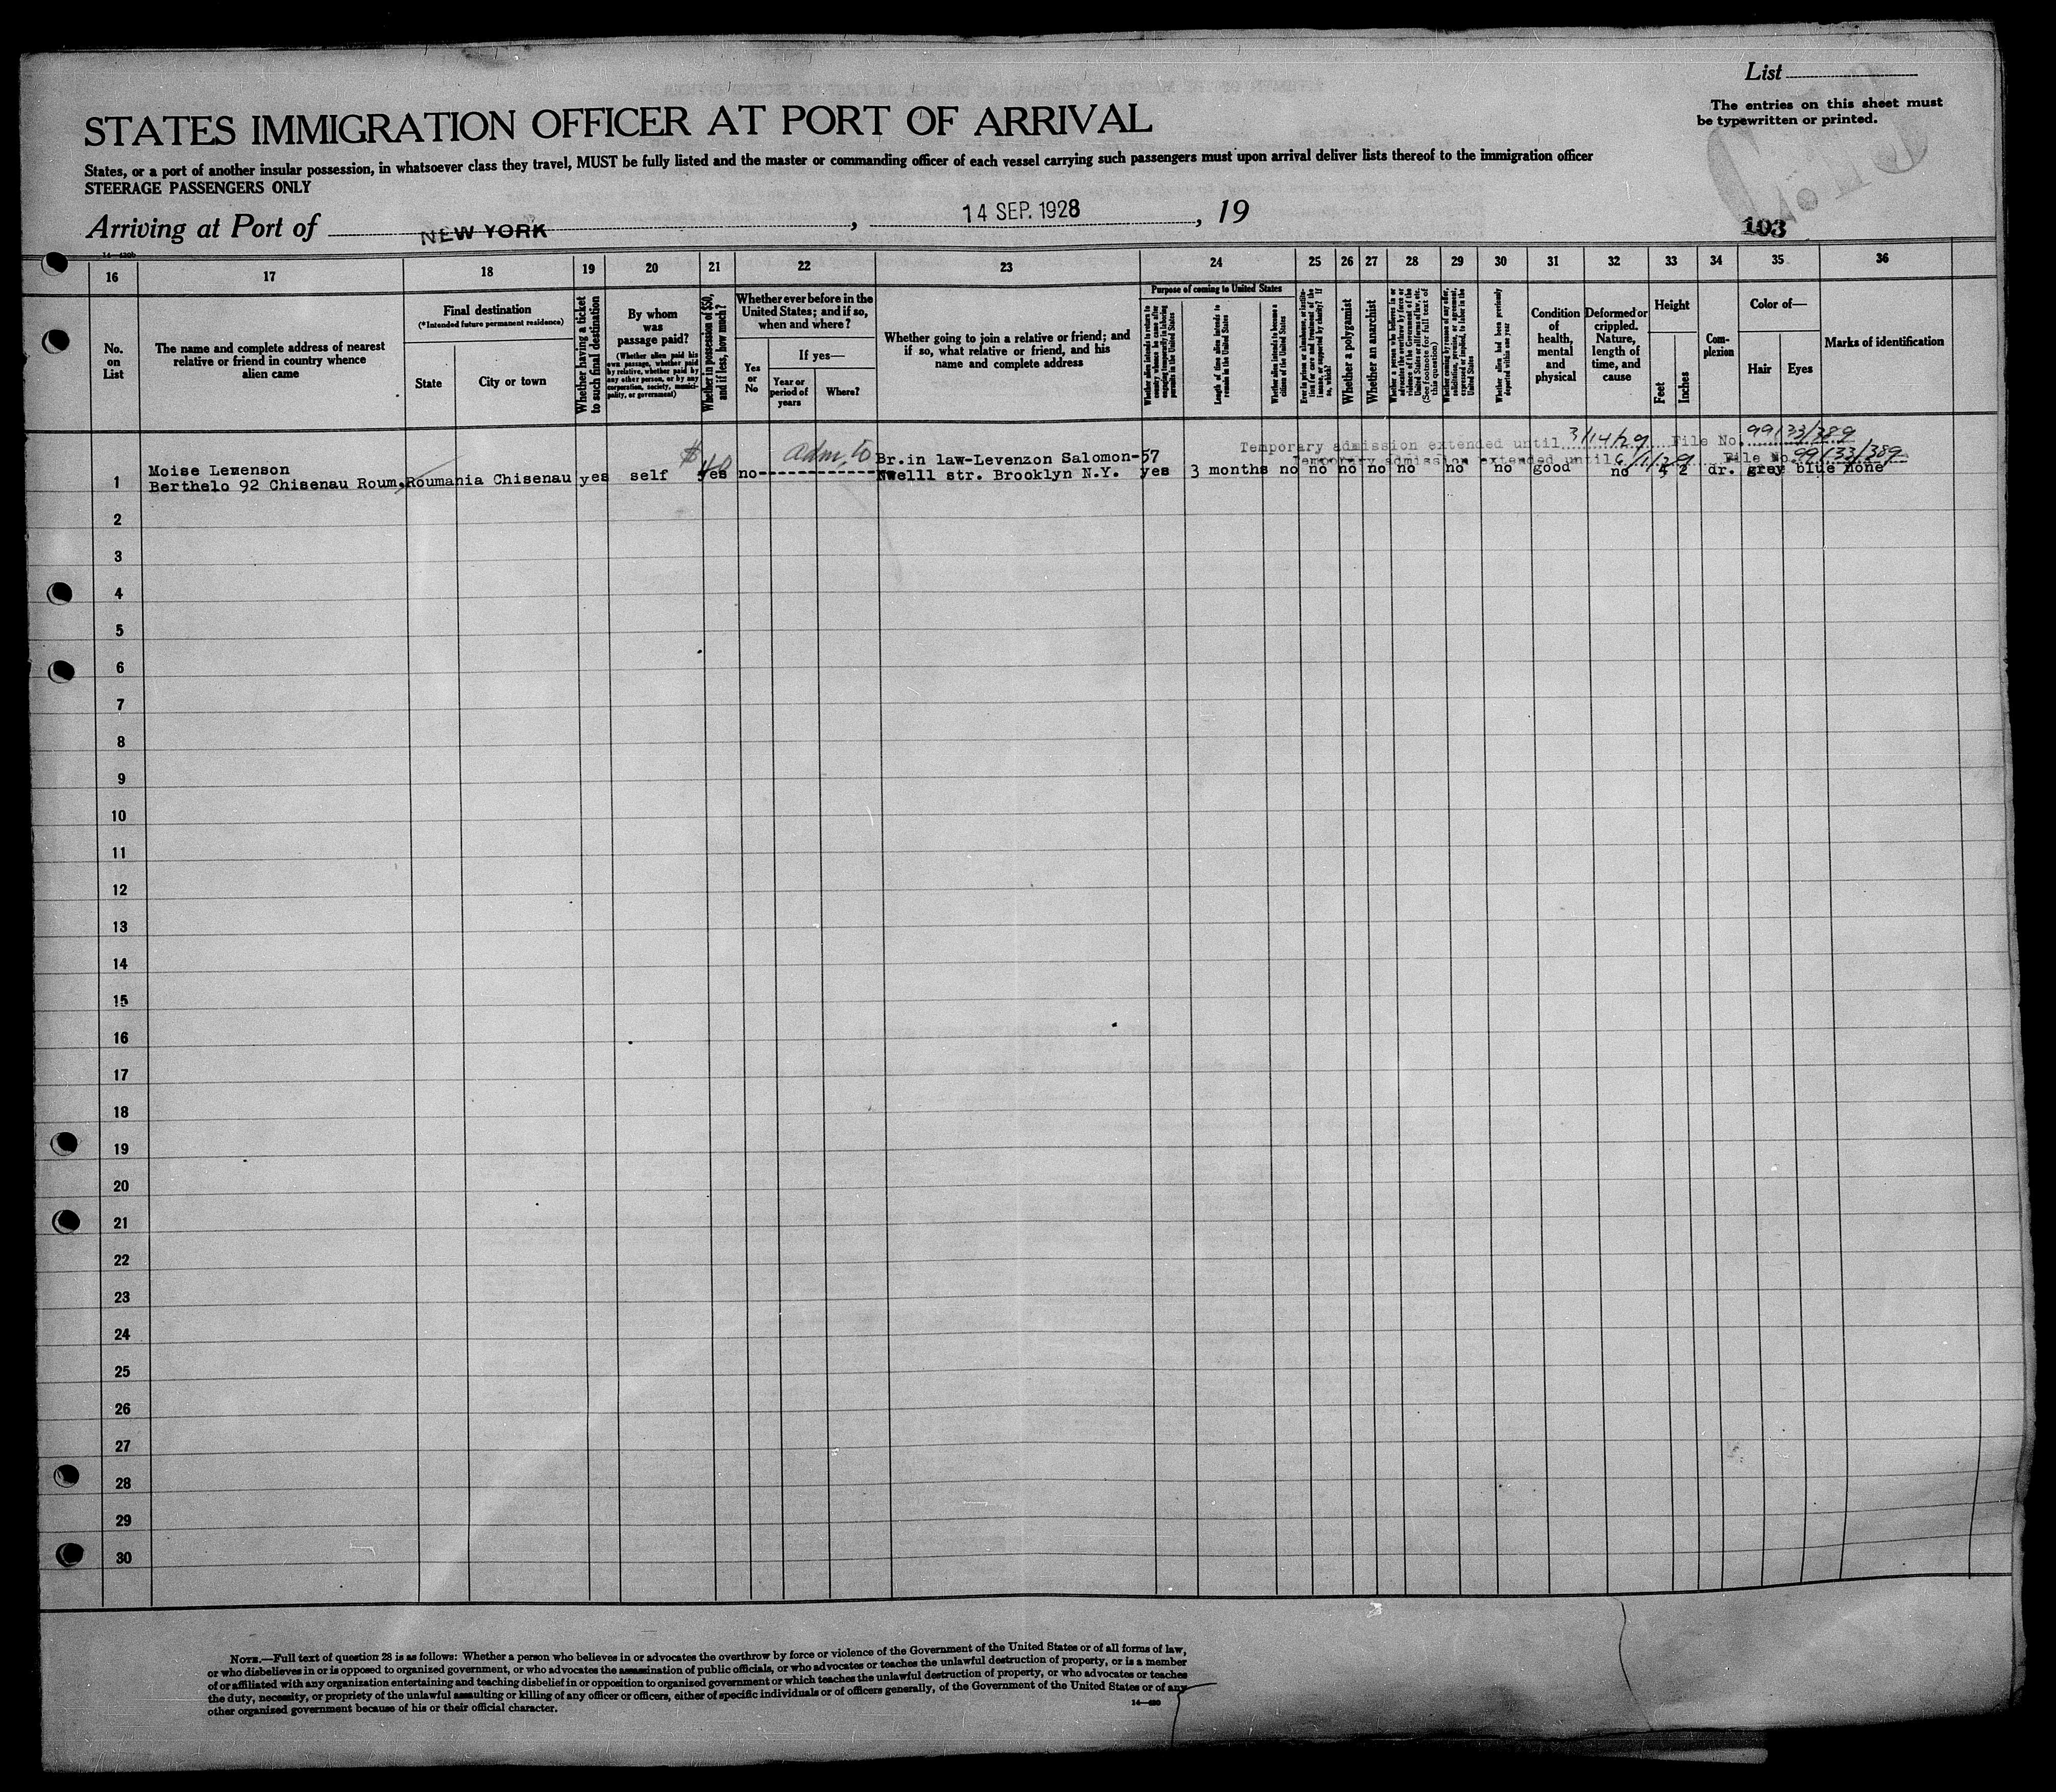 List
The entries on this sheet must
be typewritten or printed.
STATES IMMIGRATION OFFICER AT PORT OF ARRIVAL
States, or a port of another insular possession, in whatsoever class they travel, MUST be fully listed and the master or commanding officer of each vessel carrying such passengers must upon arrival deliver lists thereof to the immigration officer
STEERAGE PASSENGERS ONLY
Arriving at Port of NEW YORK, 14 SEP. 1928, 19
103
16 17 18 19 20 21 22 23 24 25 26 27 28 29 30 31 32 33 34 35 36
No.
on
List
The name and complete address of nearest
relative or friend in country whence
alien came
Final destination
(*Intended future permanent residence)
State
City or town
Whether having a ticket
to such final destination
By whom
was
passage paid?
(Whether alien paid his
own passage, whether paid
by relative, whether paid by
any other person, or by any
corporation, society, munici-
pality, or government)
Whether in possession of $50,
and if less, how much?
Whether ever before in the
United States; and if so,
when and where?
Yes
or
No
If yes—
Year or
period of
years
Where?
Whether going to join a relative or friend; and
if so, what relative or friend, and his
name and complete address
Purpose of coming to United States
Length of time alien intends to
remain in the United States
Whether alien intends to become a
citizen of the United States
Whether a polygamist
Whether an anarchist
Whether alien had been previously
deported within one year
Condition
of
health,
mental
and
physical
Deformed or
crippled.
Nature,
length of
time, and
cause
Height
Feet
Inches
Com-
plexion
Color of—
Hair
Eyes
Marks of identification
Temporary admission extended until 3/14/29 File No. 99133/389
Temporary admission extended until 6/1/29 File No. 99133/389
$40
adm. to
Moise Lewenson Br.in law-Levenzon Salomon-57
1 Berthelo 92 Chisenau Roum. Roumania Chisenau yes self yes no Nwelll str. Brooklyn N.Y. yes 3 months no no no no no no no good no 5 2 dr. grey blue none
2
3
4
5
6
7
8
9
10
11
12
13
14
15
16
17
18
19
20
21
22
23
24
25
26
27
28
29
30
NOTE.—Full text of question 28 is as follows: Whether a person who believes in or advocates the overthrow by force or violence of the Government of the United States or of all forms of law,
or who disbelieves in or is opposed to organized government, or who advocates the assassination of public officials, or who advocates or teaches the unlawful destruction of property, or is a member
of or affiliated with any organization entertaining and teaching disbelief in or opposition to organized government or which teaches the unlawful destruction of property, or who advocates or teaches
the duty, necessity, or propriety of the unlawful assaulting or killing of any officer or officers, either of specific individuals or of officers generally, of the Government of the United States or of any
other organized government because of his or their official character.